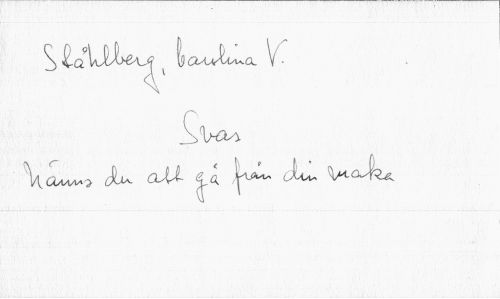 Ståhlberg, Carolina V.
Svas
Nänns du att gå från din maka